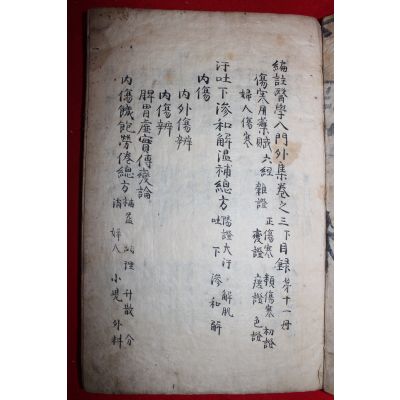 編註醫學入門外集卷之三下目錄 第十一冊
傷寒用藥賦 六經 雜證 正傷寒 類傷寒 初證
變證 壞證 色證
婦人傷寒
汗吐下滲和解溫補總方 陽證 大汗 解肌
吐 下 滲 和解
內傷
內外傷辨
內傷辨
脾胃虛實傳變論
內傷饑飽勞倦總方 補益 調理 升散 分
消 婦人 小兒 外科